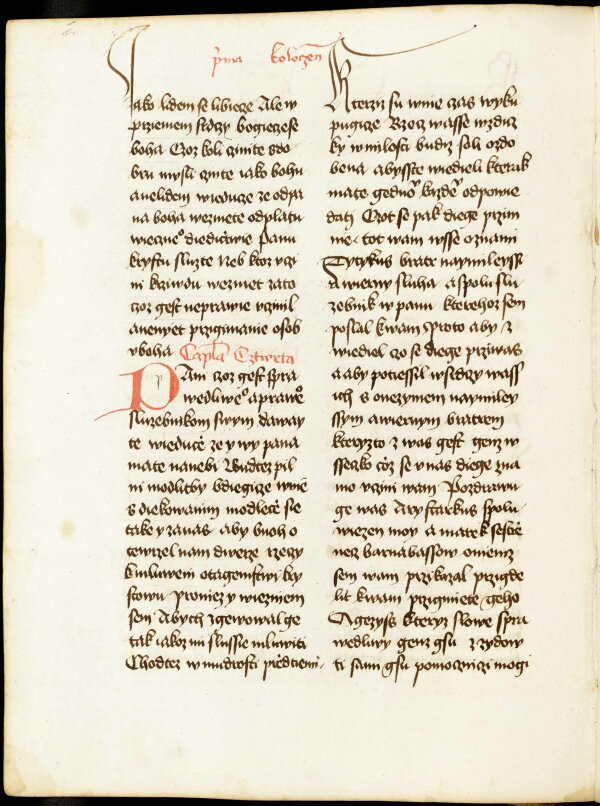 p̄ma koloczen̄
Jako lidem se libieze Ale w
prziemem srdczy bogieze se
boha Czoz koli czinite zdo
bru mysli czinte iako bohu
a nelidem wieduze ze od pa
na boha wezmete odplatu
wieczneº diedictwie Panu
krystu sluzte Neb ktoz vczi
ni krziwdu wezmet za to
czoz gest neprawie vczinil
a nenyet przigimanie osob
v boha Capl̄a Cztwrta
PAni czoz gest spra
wedliweº a praweº
sluzebnikom swym daway
te wieduce ze y wy pana
mate na nebi Budtez pil
ni modlitby bdiegize w nie
s diekowanim modlece sie
take y za nas aby buoh o
tewrzel nam dwerze rzeczy
k mluweni o tagemstwi kry
stowu pro niez y wiezniem
sem Abych zgewowal ge
tak iakoz mi slussie mluwiti
Chodtez w mudrosti przed tiemi
Kterziz su wnie czas wyku
pugize Rzecz wasse wzdicz
ky w milosti budiz soli ozdo
bena abysste wiedieli kterak
mate gednoº kazdeº odpowie
dati Czot se pak diege przi m
nie tot wam wsse oznami
Tytykus bratr naymileyssi
a wierny sluha a spolu slu
zebnik w panu kterehoz sem
poslal k wam proto aby z
wiediel czo se diege przi was
a aby potiessil w srdczy wass
ich s onezymem naymiley
ssym a wiernym bratrem
kteryzto z was gest genz w
sseczko coz se v nas diege zna
mo vczini wam Pozdrawu
ge was Arystarkus spolu
wiezen moy a marek sestre
necz barnabassow o niemz
sem wam przikazal przigde
lit k wam przigmiete geho
A gezyss kteryz slowe spra
wedliwy genz gsu z zydow
ti sami gsu pomoczniczi mogi